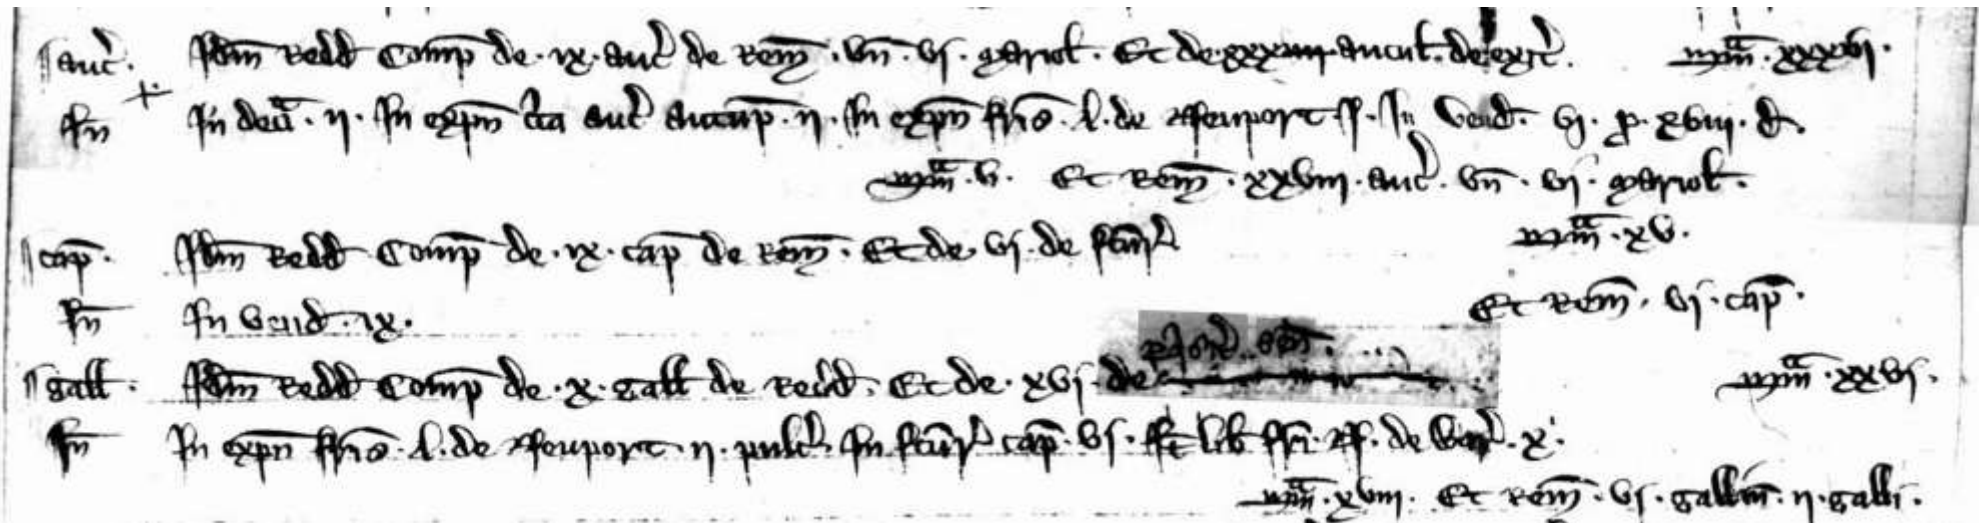 auc̄. Idm̄ redd̄ Comp̄ de .ix. auc̄ de rem̄ . vn̄ . vi. mariol̄ . Et de auc̄ul̄. de exit̄. sm̄ª .xxxvi.
In̄ In decī . ii . In exp̄n auc̄ aucup̄ . ii . In exp̄n fr̄is . l. de Neuport . i . In vend̄ . vi . p̱ . xviii . d̄.
sm̄ª .
Et rem̄ . xxviii . auc̄ . vn̄ . vi . mariol̄ .
cap̄ . Idm̄ redd̄ Comp̄ de .ix. cap̄ de rem̄ . Et de . vi . de fc̄ur̄ sm̄ª . xv .
In̄ In vend̄ . ix . Et rem̄ . vi . cap̄ .
gall̄ . Idm̄ redd̄ Comp̄ de . x . gall̄ de redd̄ . Et de . xvi . de sm̄ª . xxvi .
In̄ In exp̄n fr̄is . l. de Neuport . ii . pulc̄ . In fc̄ur̄ cap̄ . vi . It̄ lib̄ fr̄i . . de War̄ . x .
sm̄ª . xviii . Et rem̄ . vi . gallin̄ . ii . galli .